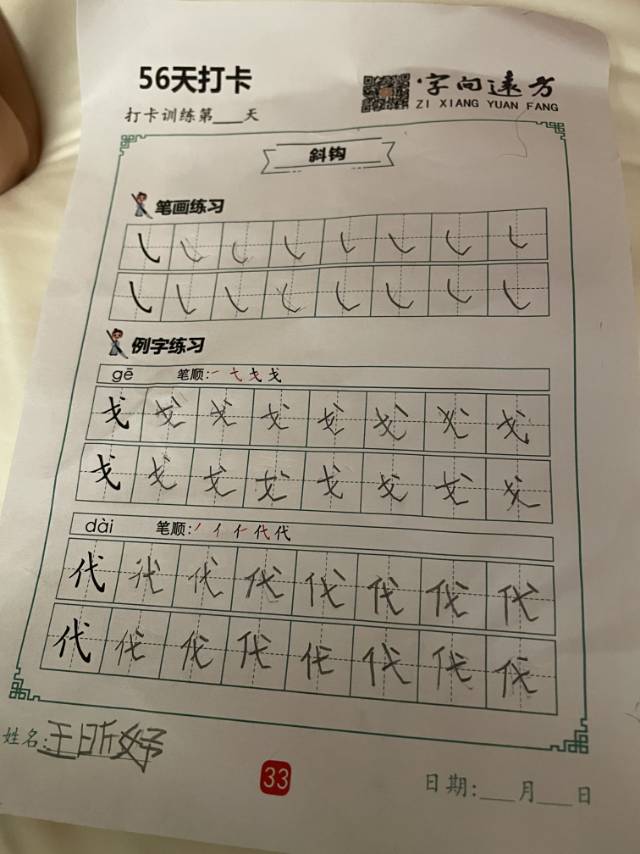 56天打卡
字向遠方
ZI XIANG YUAN FANG
打卡训练第___天
斜钩
笔画练习
㇂ ㇂ ㇂ ㇂ ㇂ ㇂ ㇂ ㇂
㇂ ㇂ ㇂ ㇂ ㇂ ㇂ ㇂ ㇂
例字练习
gē 笔顺:一 弋 戈 戈
戈 戈 戈 戈 戈 戈 戈 戈
戈 戈 戈 戈 戈 戈 戈 戈
dài 笔顺:丿 亻 仁 代 代
代 代 代 代 代 代 代 代
代 代 代 代 代 代 代 代
姓名:王昕妤
33
日期:___月___日